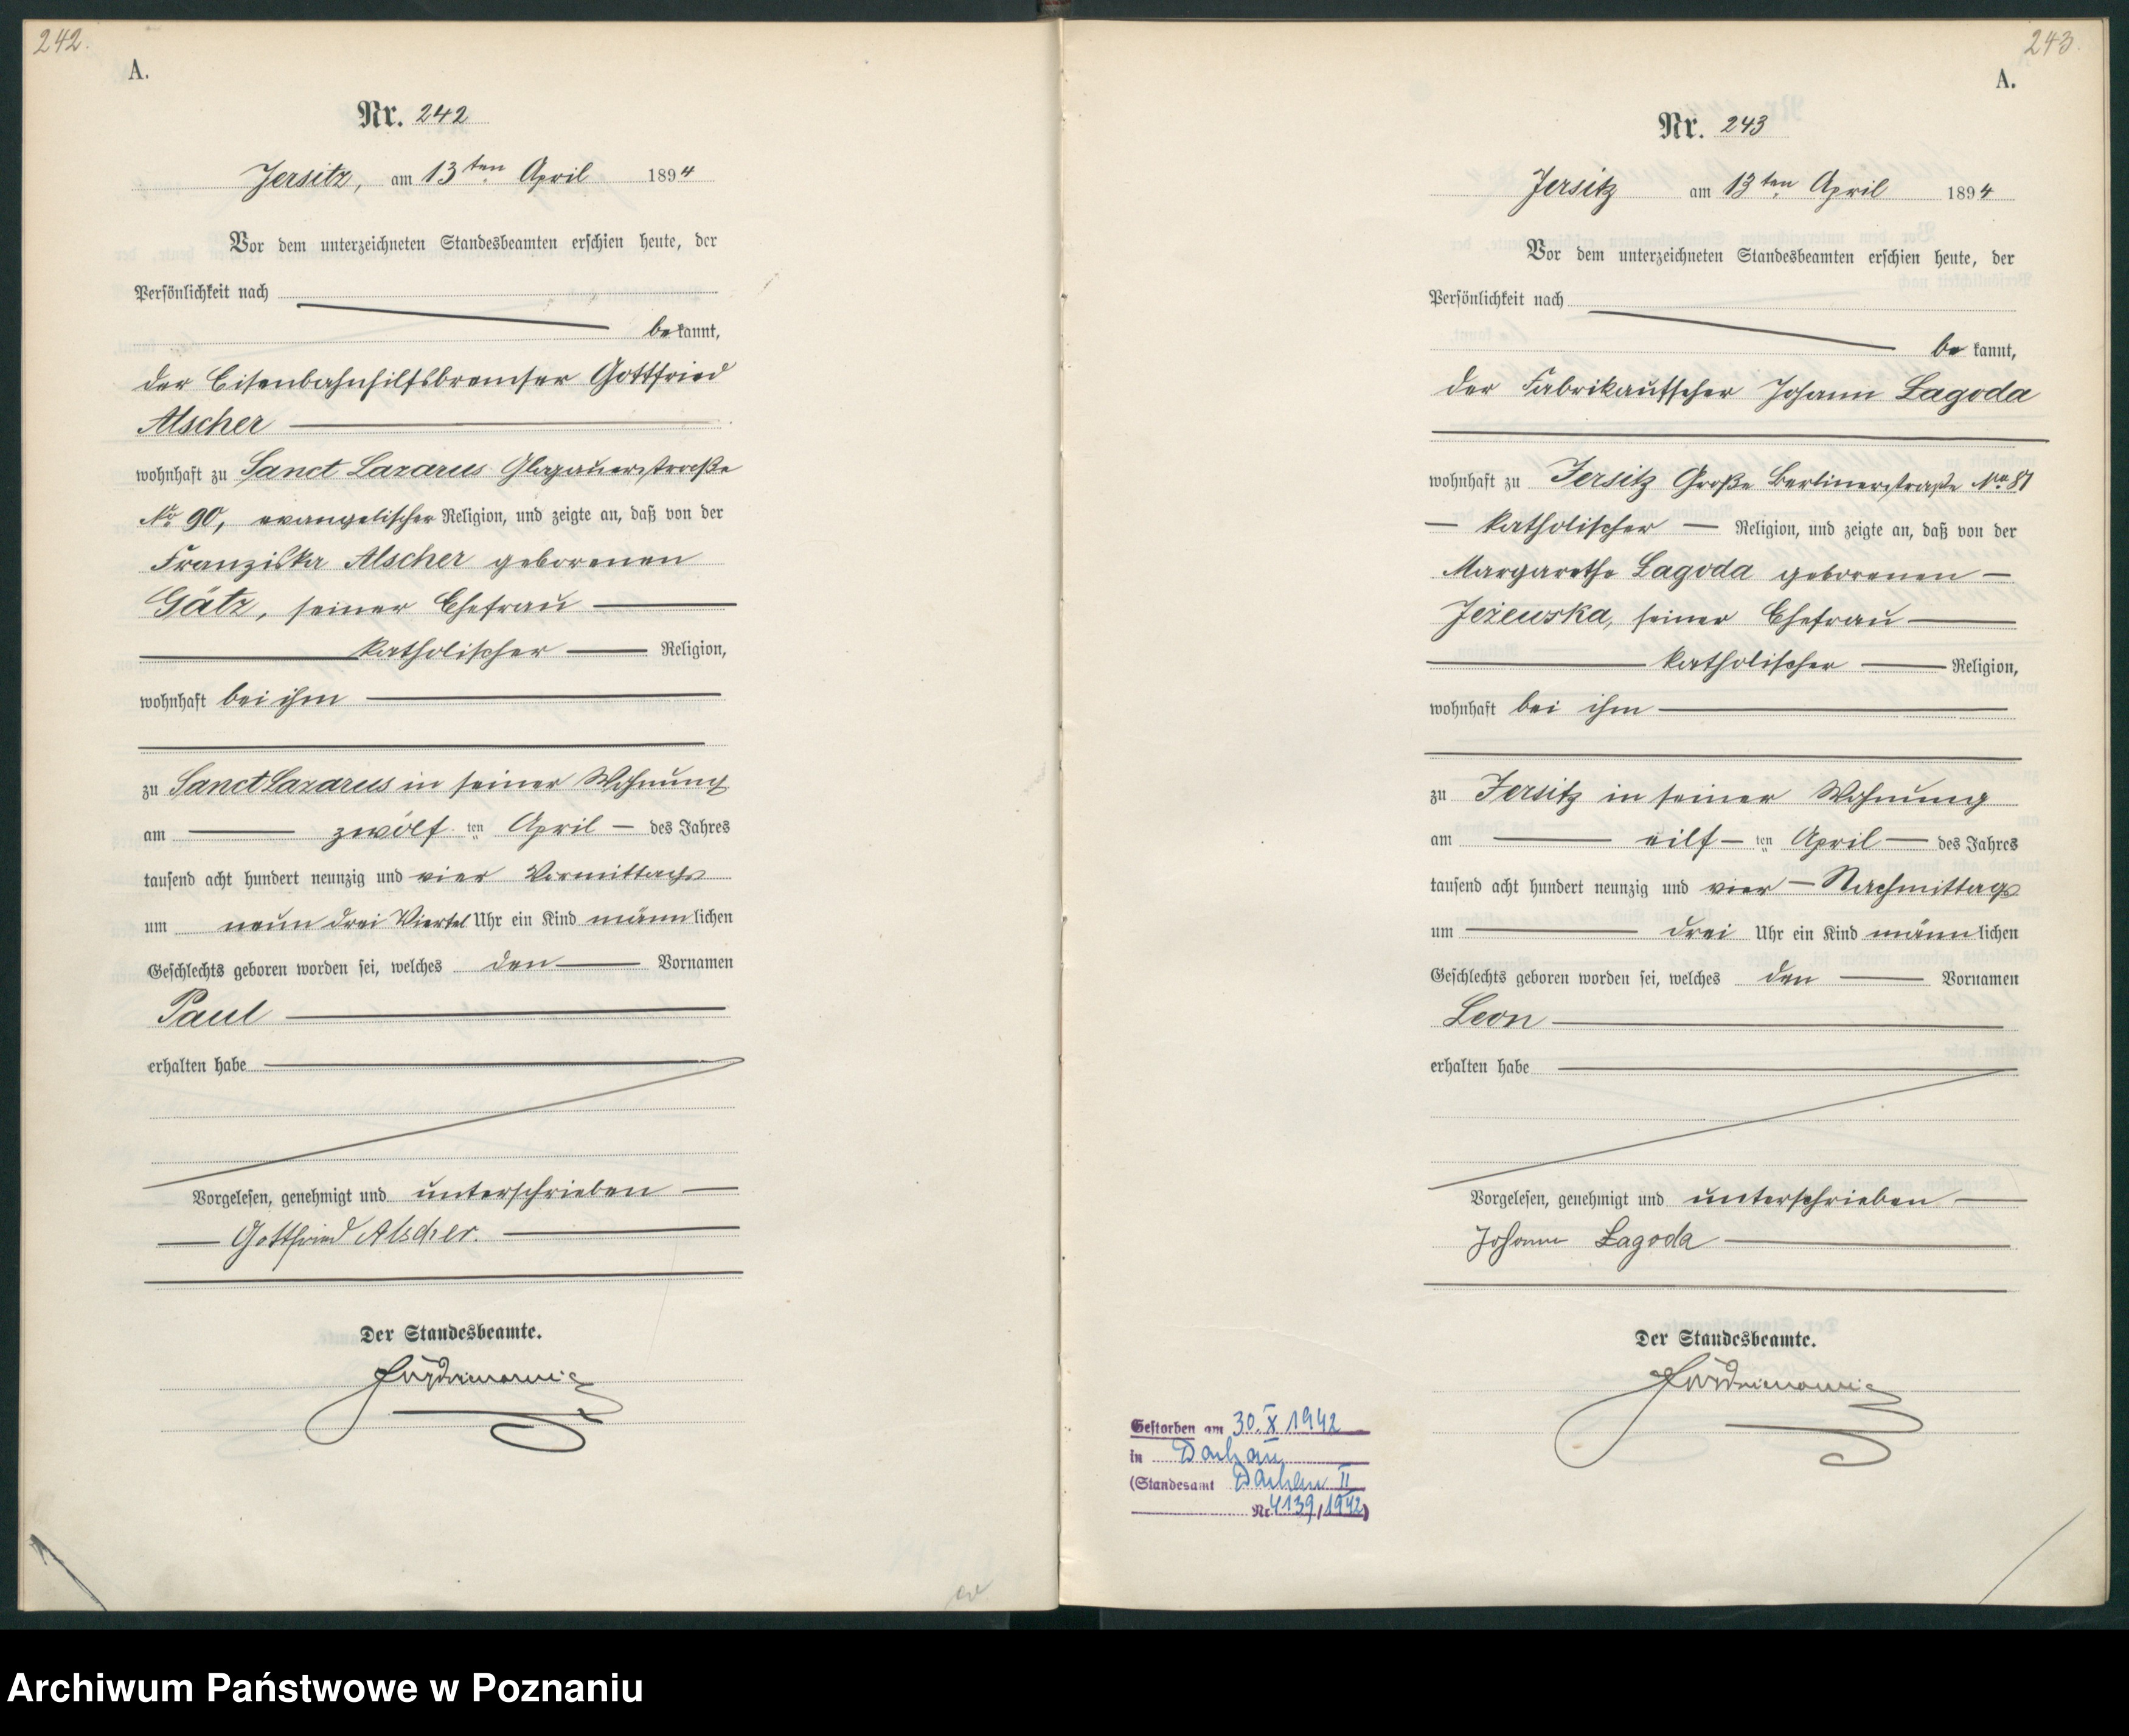 242.
A.
Nr. 242
Jersitz, am 13ten April 1894
Vor dem unterzeichneten Standesbeamten erschien heute, der
Persönlichkeit nach
bekannt,
der Eisenbahnhilfsbremser Gottfried
Alscher
wohnhaft zu Sanct Lazarus Glogauerstraße
No 90, evangelischer Religion, und zeigte an, daß von der
Franziska Alscher geborenen
Gätz, seiner Ehefrau
katholischer Religion,
wohnhaft bei ihm
zu Sanct Lazarus in seiner Wohnung
am zwölften April des Jahres
tausend acht hundert neunzig und vier Vormittags
um neun drei Viertel Uhr ein Kind männlichen
Geschlechts geboren worden sei, welches den Vornamen
Paul
erhalten habe
Vorgelesen, genehmigt und unterschrieben
Gottfried Alscher.
Der Standesbeamte.
243.
A.
Nr. 243
Jersitz am 13ten April 1894
Vor dem unterzeichneten Standesbeamten erschien heute, der
Persönlichkeit nach
bekannt,
der Johann Łagoda
wohnhaft zu Jersitz Große Berlinerstraße No. 81
katholischer Religion, und zeigte an, daß von der
Margarethe Łagoda geborenen
Jeżewska, seiner Ehefrau
katholischer Religion,
wohnhaft bei ihm
zu Jersitz in seiner Wohnung
am eilften April des Jahres
tausend acht hundert neunzig und vier Nachmittags
um drei Uhr ein Kind männlichen
Geschlechts geboren worden sei, welches den Vornamen
Leon
erhalten habe
Vorgelesen, genehmigt und unterschrieben
Johann Łagoda
Der Standesbeamte.
Gestorben am 30. X 1942
in Dachau
(Standesamt Dachau II
Nr. 4139/1942)
Archiwum Państwowe w Poznaniu